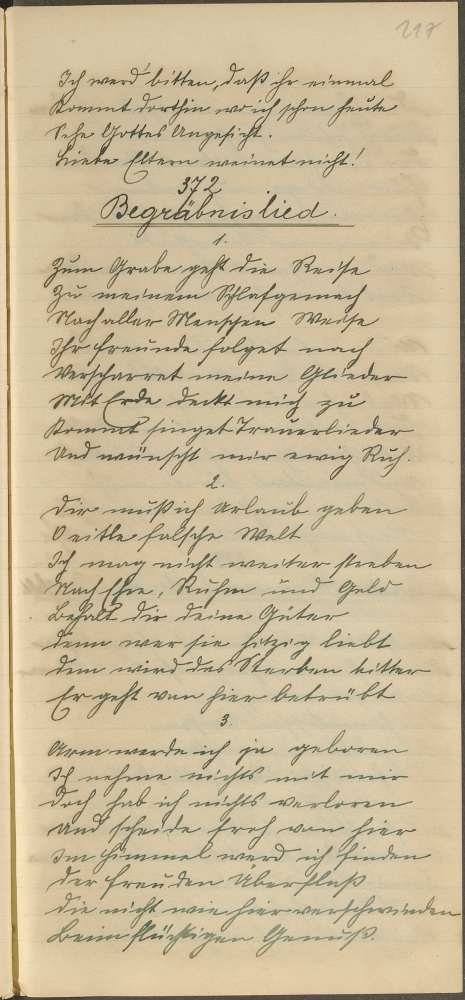 217
Ich werd' bitten, daß ihr einmal
Kommt dorthin wo ich schon heute
Sehe Gottes Angesicht.
Liebe Eltern weinet nicht!
372
Begräbnislied.
1.
Zum Grabe geht die Reise
Zu meinem Schlafgemach
Nach aller Menschen Weise
Ihr Freunde folget nach
Verscharret meine Glieder
Mit Erde deckt mich zu
Kommt singet Trauerlieder
Und wünscht mir ewig Ruh.
2.
Dir muß ich Urlaub geben
O eitle falsche Welt
Ich mag nicht weiter streben
Nach Ehre, Ruhm und Geld
Behalt dir deine Güter
Denn wer sie hitzig liebt
Dem wird das Sterben bitter
Er geht von hier betrübt
3.
Arm werde ich ja geboren
Ich nehme nichts mit mir
Doch hab ich nichts verloren
Und scheide froh von hier
Im Himmel werd ich finden
Der Freuden Überfluß
Die nicht wie hier verschwinden
Beim flüchtigen Genuß.